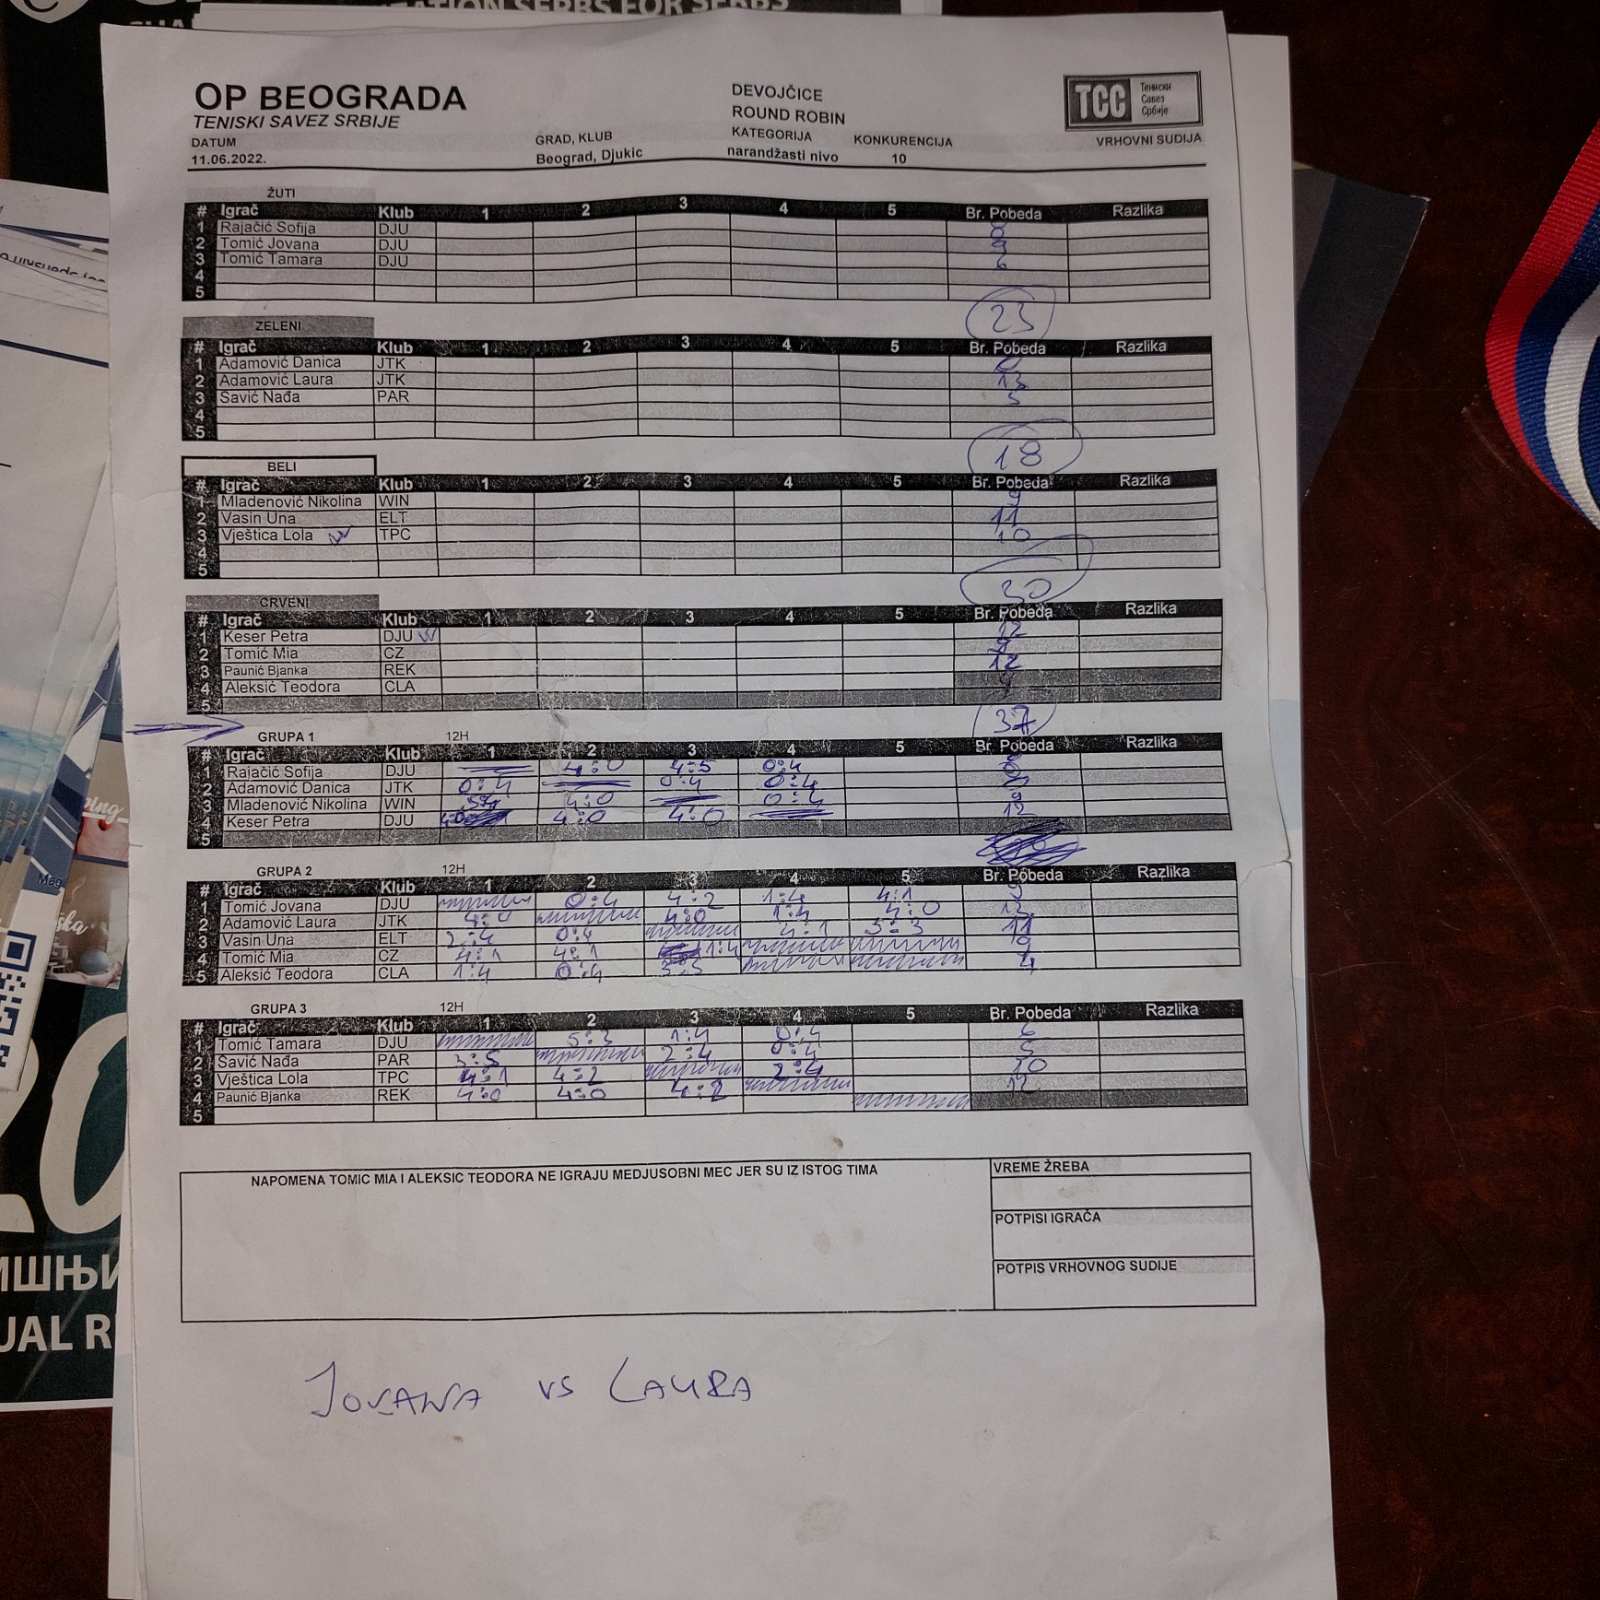 ATION SERBS FOR SERBS
OP BEOGRADA
TENISKI SAVEZ SRBIJE
DEVOJČICE
ROUND ROBIN
TCC Тениски Савез Србије
DATUM GRAD, KLUB KATEGORIJA KONKURENCIJA VRHOVNI SUDIJA
11.06.2022. Beograd, Djukic narandžasti nivo 10
ŽUTI
# Igrač Klub 1 2 3 4 5 Br. Pobeda Razlika
1 Rajačić Sofija DJU 8
2 Tomić Jovana DJU 9
3 Tomić Tamara DJU 6
4
5
23
ZELENI
# Igrač Klub 1 2 3 4 5 Br. Pobeda Razlika
1 Adamović Danica JTK 0
2 Adamović Laura JTK 13
3 Savić Nađa PAR 5
4
5
18
BELI
# Igrač Klub 1 2 3 4 5 Br. Pobeda Razlika
1 Mladenović Nikolina WIN 9
2 Vasin Una ELT 11
3 Vještica Lola TPC 10
4
5
30
CRVENI
# Igrač Klub 1 2 3 4 5 Br. Pobeda Razlika
1 Keser Petra DJU 12
2 Tomić Mia CZ 9
3 Paunić Bjanka REK 12
4 Aleksić Teodora CLA 4
5
37
GRUPA 1 12H
# Igrač Klub 1 2 3 4 5 Br. Pobeda Razlika
1 Rajačić Sofija DJU 4:0 4:5 0:4 8
2 Adamović Danica JTK 0:4 0:4 0:4
3 Mladenović Nikolina WIN 5:4 4:0 0:4 9
4 Keser Petra DJU 4:0 4:0 4:0 12
5
GRUPA 2 12H
# Igrač Klub 1 2 3 4 5 Br. Pobeda Razlika
1 Tomić Jovana DJU 0:4 4:2 1:4 4:1 9
2 Adamović Laura JTK 4:0 4:0 1:4 4:0 13
3 Vasin Una ELT 2:4 0:4 4:1 5:3 11
4 Tomić Mia CZ 4:1 4:1 1:4 9
5 Aleksić Teodora CLA 1:4 0:4 3:5 4
GRUPA 3 12H
# Igrač Klub 1 2 3 4 5 Br. Pobeda Razlika
1 Tomić Tamara DJU 5:3 1:4 0:4 6
2 Savić Nađa PAR 3:5 2:4 0:4 5
3 Vještica Lola TPC 4:1 4:2 2:4 10
4 Paunić Bjanka REK 4:0 4:0 4:2 12
5
NAPOMENA TOMIC MIA I ALEKSIC TEODORA NE IGRAJU MEDJUSOBNI MEC JER SU IZ ISTOG TIMA
VREME ŽREBA
POTPISI IGRAČA
POTPIS VRHOVNOG SUDIJE
JOVANA VS LAURA